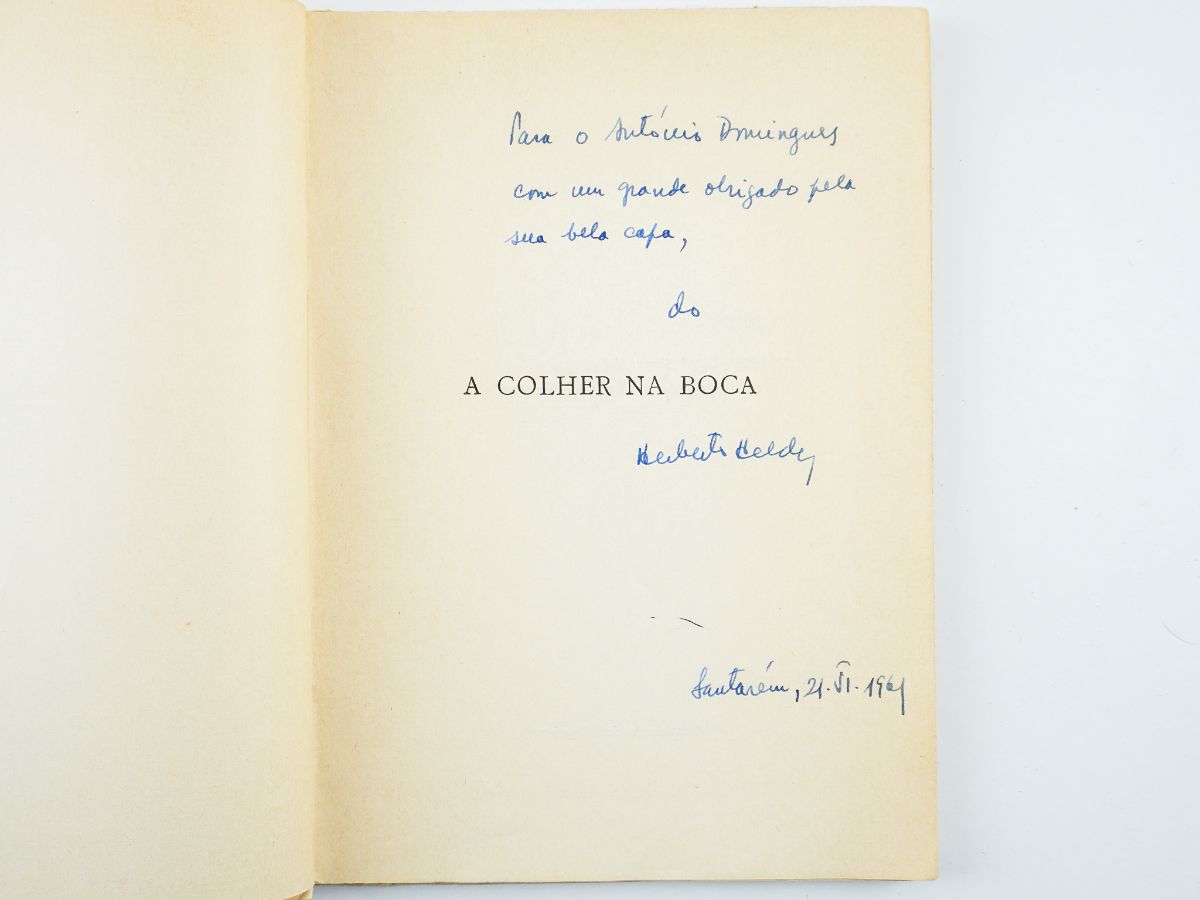 Para o António Domingues
com um grande obrigado pela
sua bela capa,
do
A COLHER NA BOCA
Herberto Helder
Santarém, 21.VI.1961